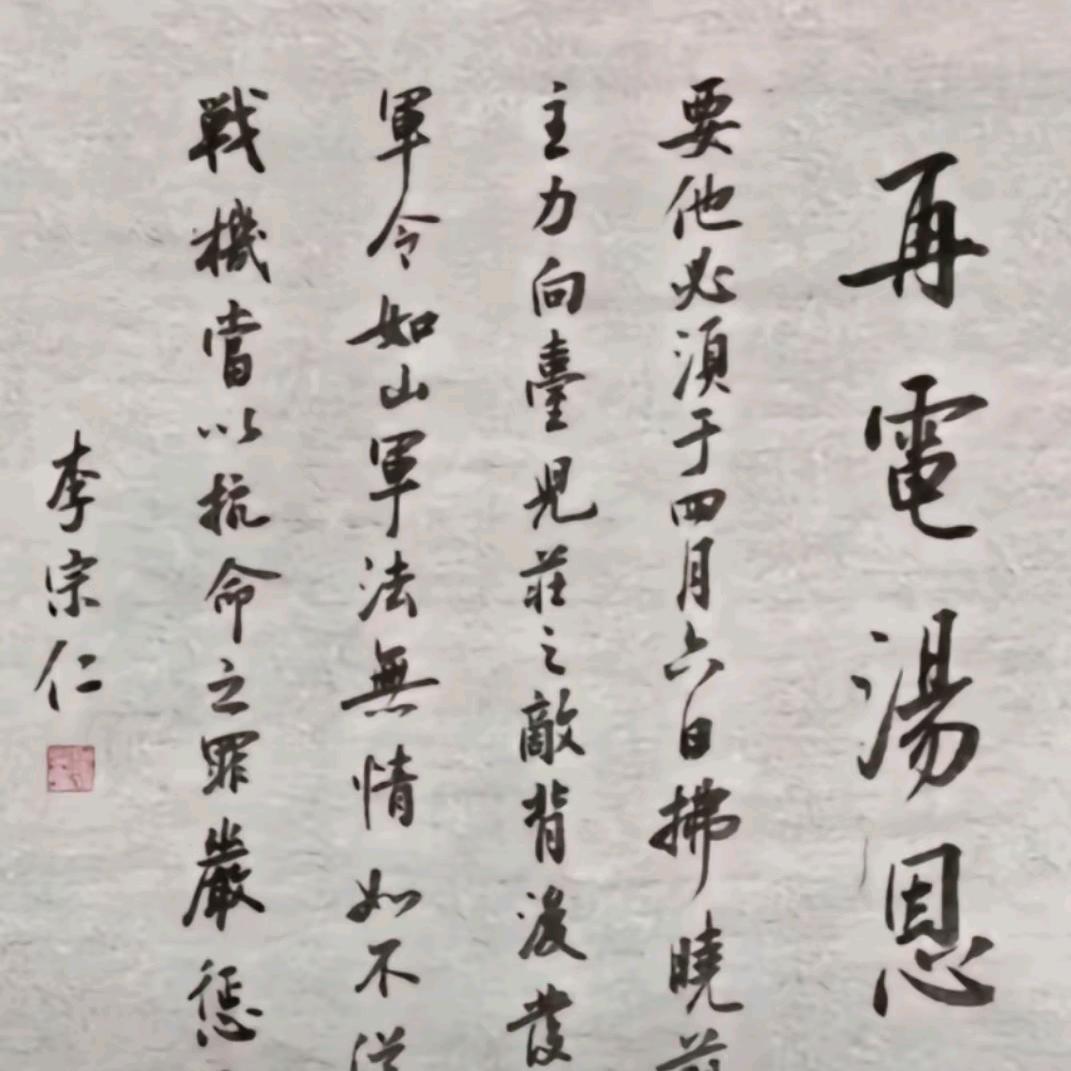 再電湯恩
要他必須于四月六日拂曉前
主力向臺兒莊之敵背後發
軍令如山軍法無情如不從
戦機當以抗命之罪嚴惩
李宗仁